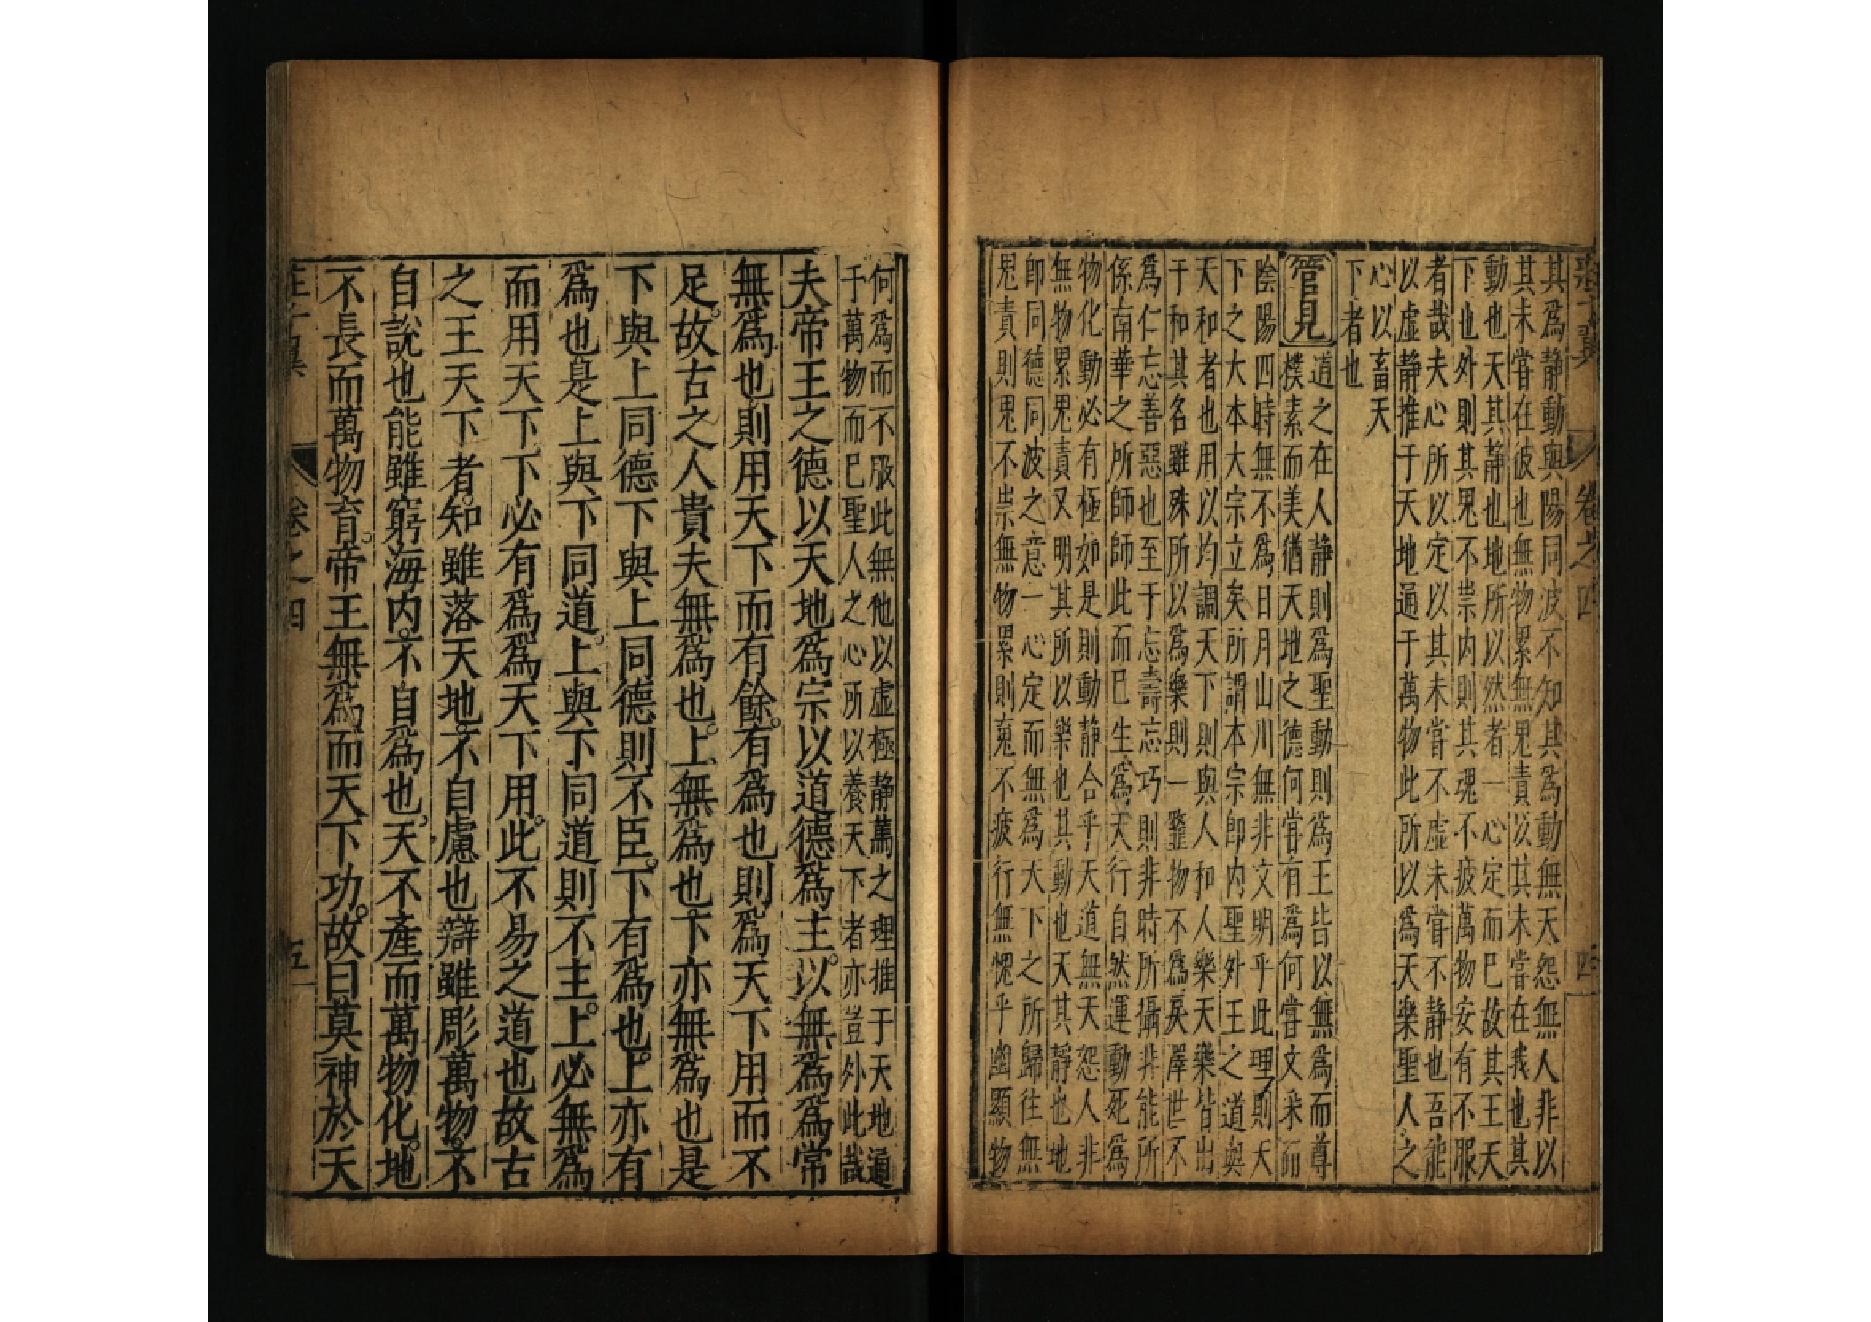 莊子翼 卷之四 四
其為静動與陽同波不知其為動無天怨無人非以
其未嘗在彼也無物累無鬼責以其未嘗在我也其
動也天其静也地所以然者一心定而已故其王天
下也外則其鬼不祟内則其魂不疲萬物安有不服
者哉夫心所以定以其未嘗不虚未嘗不静也吾能
以虚静推于天地通于萬物此所以為天樂聖人之
心以畜天
下者也
管見
道之在人静則為聖動則為王皆以無為而尊
樸素而美猶天地之德何嘗有為何嘗文采而
陰陽四時無不為日月山川無非文明乎此理則天
下之大本大宗立矣所謂本宗即内聖外王之道與
天和者也用以均調天下則與人和人樂天樂皆出
于和其名雖殊所以為樂則一韲物不為戾澤世不
為仁忘善惡也至于忘壽忘巧則非時所攝非能所
係南華之所師師此而已生為天行自然運動死為
物化動必有極如是則動静合乎天道無天怨人非
無物累鬼責又明其所以樂也其動也天其静也地
即同德同波之意一心定而無為天下之所歸往無
鬼責則鬼不祟無物累則䰟不疲行無愧乎幽顯物
何為而不服此無他以虚極静篤之理推于天地通
于萬物而已聖人之心所以養天下者亦豈外此哉
夫帝王之德以天地為宗以道德為主。以無為為常
無為也則用天下而有餘。有為也則為天下用而不
足。故古之人貴夫無為也。上無為也下亦無為也是
下與上同德下與上同德則不臣。下有為也。上亦有
為也是上與下同道。上與下同道則不主。上必無為
而用天下。下必有為為天下用。此不易之道也故古
之王天下者。知雖落天地。不自慮也辯雖彫萬物。不
自說也能雖窮海内。不自為也。天不產而萬物化。地
不長而萬物育。帝王無為而天下功。故曰莫神於天
莊子翼 卷之四 五